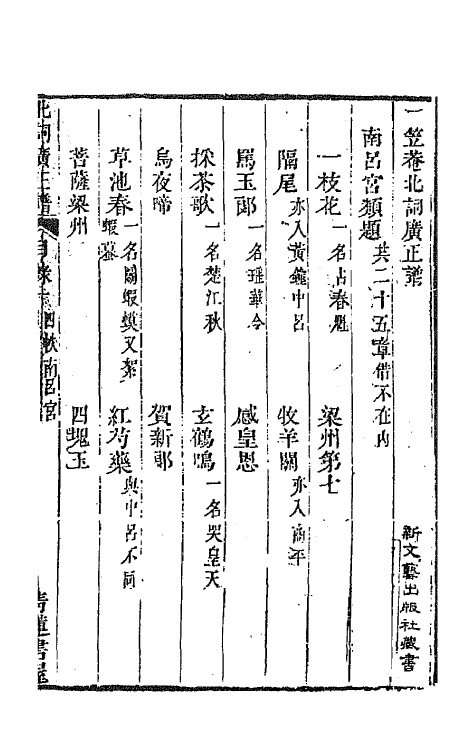 一笠菴北詞廣正譜
南呂宮類題 共二十五章借不在內
一枝花 一名占春魁 梁州第七
隔尾 亦入黃鐘中呂 牧羊關 亦入商平
罵玉郎 一名瑶華令 感皇恩
採茶歌 一名楚江秋 玄鶴鳴 一名哭皇天
烏夜啼 賀新郎
草池春 一名鬭蝦蟆又絮蝦蟇 紅芍藥 與中呂不同
菩薩梁州 四塊玉
北詞廣正譜 目錄 四帙南呂宮
青蓮書屋
新文藝出版社藏書